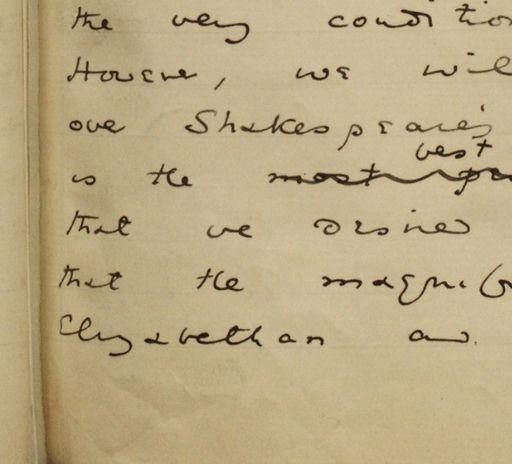 the very condition
However, we wil
over Shakespeare's
best
is the most
that we desired
that the magni
Elizabethan